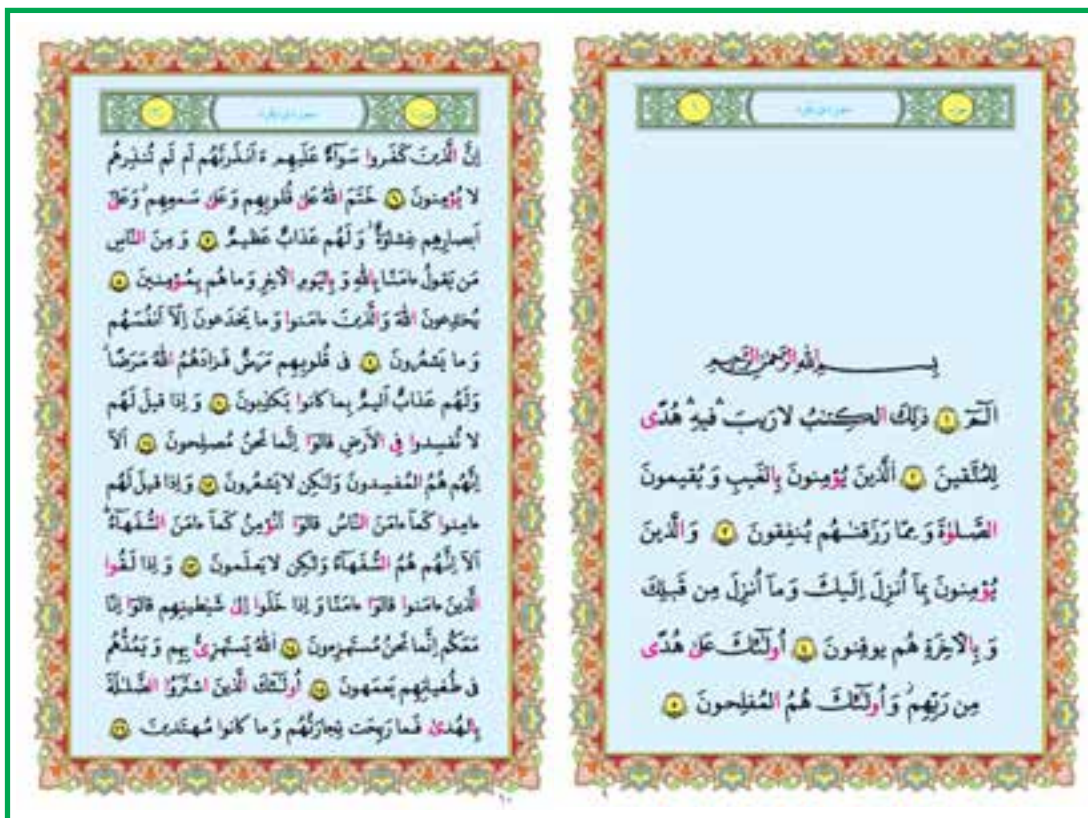 بِسمِ اللهِ الرَّحمٰنِ الرَّحیمِ
الٓمٓ ﴿١﴾ ذٰلِكَ الكِتٰبُ لا رَيبَ ۛ فيهِ ۛ هُدًى
لِلمُتَّقينَ ﴿٢﴾ اَلَّذينَ يُؤمِنونَ بِالغَيبِ وَ يُقيمونَ
الصَّلوٰةَ وَ مِمّا رَزَقنٰهُم يُنفِقونَ ﴿٣﴾ وَ الَّذينَ
يُؤمِنونَ بِمآ اُنزِلَ اِلَيكَ وَ مآ اُنزِلَ مِن قَبلِكَ
وَ بِالآخِرَةِ هُم يوقِنونَ ﴿٤﴾ اُولٰٓئِكَ عَلىٰ هُدًى
مِن رَبِّهِم ۖ وَ اُولٰٓئِكَ هُمُ المُفلِحونَ ﴿٥﴾
٩
اِنَّ الَّذينَ كَفَروا سَوآءٌ عَلَيهِم ءَاَنذَرتَهُم اَم لَم تُنذِرهُم
لا يُؤمِنونَ ﴿٦﴾ خَتَمَ اللهُ عَلىٰ قُلوبِهِم وَ عَلىٰ سَمعِهِم ۖ وَ عَلىٰٓ
اَبصارِهِم غِشاوَةٌ ۖ وَ لَهُم عَذابٌ عَظيمٌ ﴿٧﴾ وَ مِنَ النّاسِ
مَن يَقولُ ءامَنّا بِاللهِ وَ بِاليَومِ الآخِرِ وَ ما هُم بِمُؤمِنينَ ﴿٨﴾
يُخٰدِعونَ اللهَ وَ الَّذينَ ءامَنوا وَ ما يَخدَعونَ اِلّآ اَنفُسَهُم
وَ ما يَشعُرونَ ﴿٩﴾ فى قُلوبِهِم مَرَضٌ فَزادَهُمُ اللهُ مَرَضًا ۖ
وَ لَهُم عَذابٌ اَليمٌ بِما كانوا يَكذِبونَ ﴿١٠﴾ وَ اِذا قيلَ لَهُم
لا تُفسِدوا فِى الاَرضِ قالوٓا اِنَّما نَحنُ مُصلِحونَ ﴿١١﴾ اَلآ
اِنَّهُم هُمُ المُفسِدونَ وَ لٰكِن لا يَشعُرونَ ﴿١٢﴾ وَ اِذا قيلَ لَهُم
ءامِنوا كَمآ ءامَنَ النّاسُ قالوٓا اَنُؤمِنُ كَمآ ءامَنَ السُّفَهآءُ ۗ
اَلآ اِنَّهُم هُمُ السُّفَهآءُ وَ لٰكِن لا يَعلَمونَ ﴿١٣﴾ وَ اِذا لَقُوا
الَّذينَ ءامَنوا قالوٓا ءامَنّا وَ اِذا خَلَوا اِلىٰ شَيٰطينِهِم قالوٓا اِنّا
مَعَكُم اِنَّما نَحنُ مُستَهزِءونَ ﴿١٤﴾ اَللهُ يَستَهزِئُ بِهِم وَ يَمُدُّهُم
فى طُغيانِهِم يَعمَهونَ ﴿١٥﴾ اُولٰٓئِكَ الَّذينَ اشتَرَوُا الضَّلٰلَةَ
بِالهُدىٰ فَما رَبِحَت تِجارَتُهُم وَ ما كانوا مُهتَدينَ ﴿١٦﴾
١٠